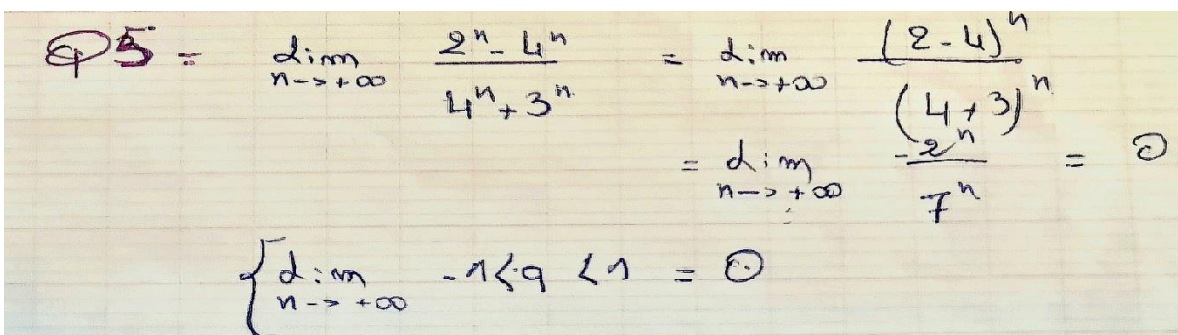 Q5 = lim n->+∞ (2^n - 4^n)/(4^n + 3^n) = lim n->+∞ (2-4)^n/(4+3)^n
= lim n->+∞ -2^n/7^n = 0
{ lim n->+∞ -1<q<1 = 0